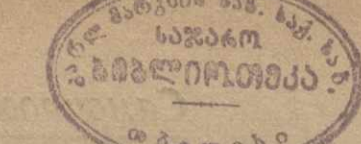 კარლ მარქსის სახ. საქ. სახ.
საჯარო
ბიბლიოთეკა